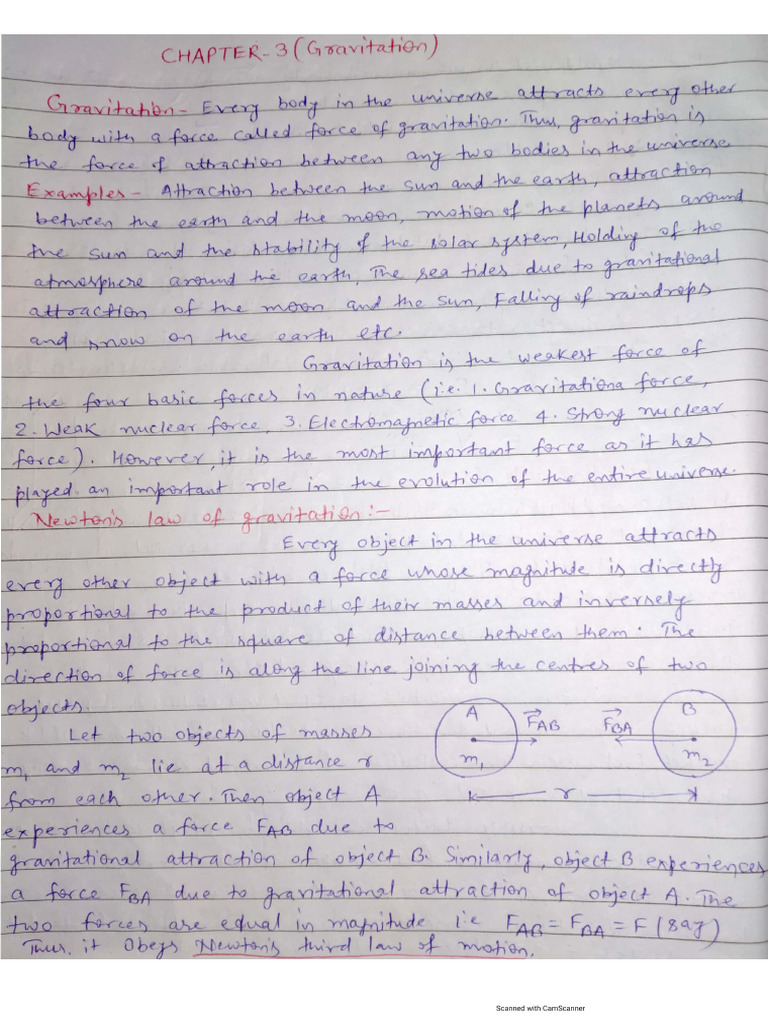 CHAPTER-3 (Gravitation)
Gravitation - Every body in the universe attracts every other
body with a force called force of gravitation. Thus, gravitation is
the force of attraction between any two bodies in the universe
Examples - Attraction between the sun and the earth, attraction
between the earth and the moon, motion of the planets around
the sun and the stability of the solar system, Holding of the
atmosphere around the earth, The sea tides due to gravitational
attraction of the moon and the sun, Falling of raindrops
and snow on the earth etc.
Gravitation is the weakest force of
the four basic forces in nature (i.e. 1. Gravitationa force,
2. Weak nuclear force, 3. Electromagnetic force 4. Strong nuclear
force). However, it is the most important force as it has
played an important role in the evolution of the entire universe.
Newton's law of gravitation:-
Every object in the universe attracts
every other object with a force whose magnitude is directly
proportional to the product of their masses and inversely
proportional to the square of distance between them. The
direction of force is along the line joining the centres of two
objects.
Let two objects of masses
m₁ and m₂ lie at a distance r
from each other. Then object A
experiences a force F_AB due to
A F_AB F_BA B
m₁ m₂
r
gravitational attraction of object B. Similarly, object B experiences
a force F_BA due to gravitational attraction of object A. The
two forces are equal in magnitude i.e F_AB = F_BA = F (say)
Thus, it Obeys Newton's third law of motion.
Scanned with CamScanner